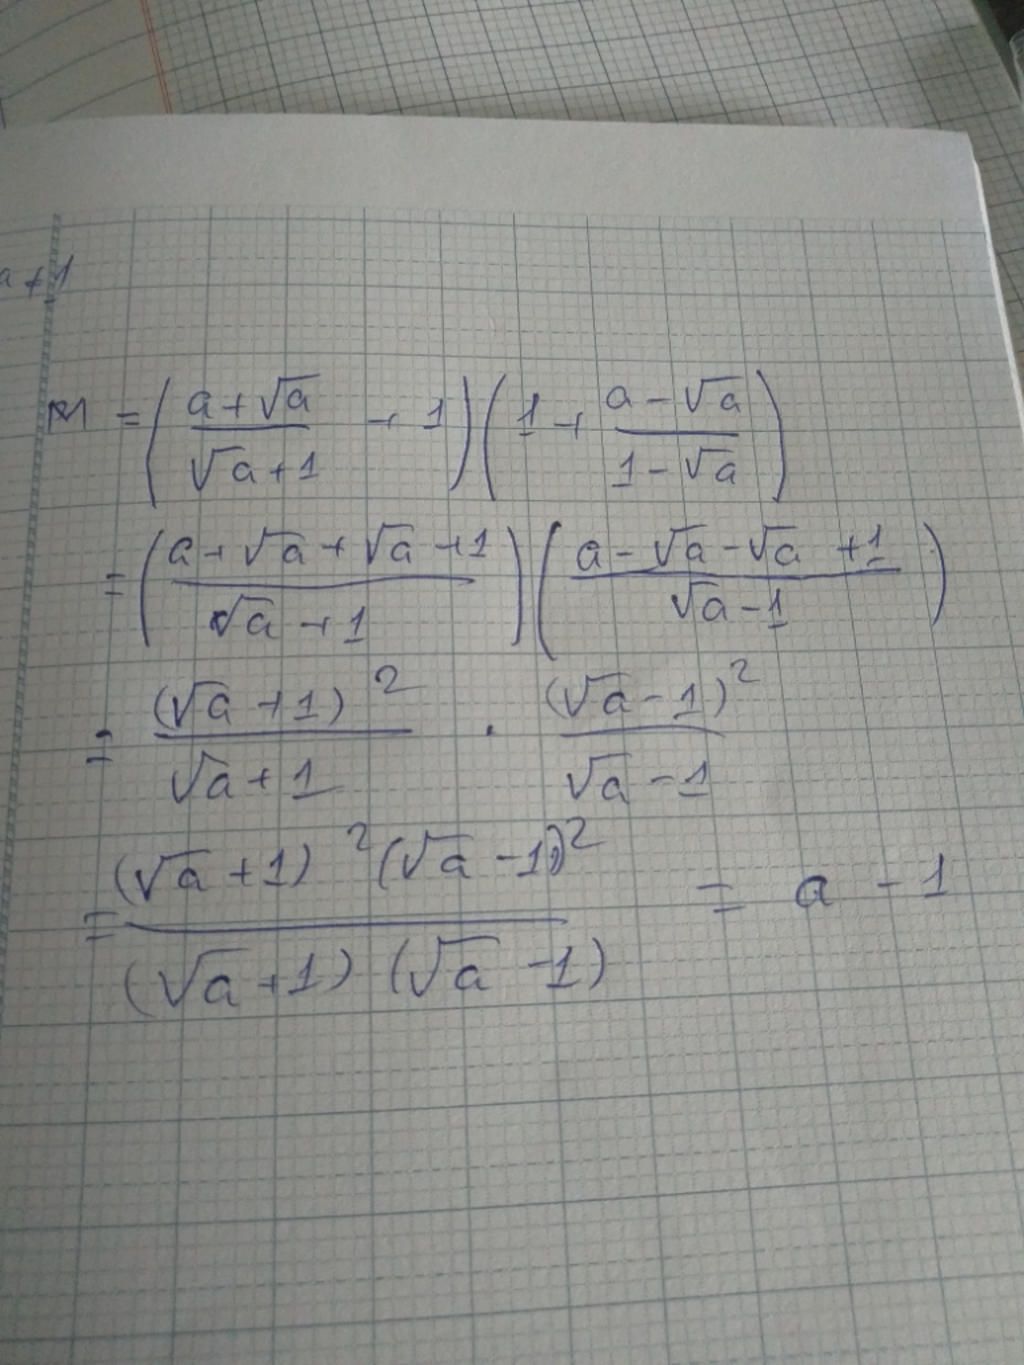 a+1
M = ( (a+√a)/(√a+1) + 1 ) ( 1 + (a-√a)/(1-√a) )
= ( (a+√a+√a+1)/(√a+1) ) ( (a-√a-√a+1)/(√a-1) )
= (√a+1)²/(√a+1) · (√a-1)²/(√a-1)
= (√a+1)²(√a-1)²/((√a+1)(√a-1)) = a-1